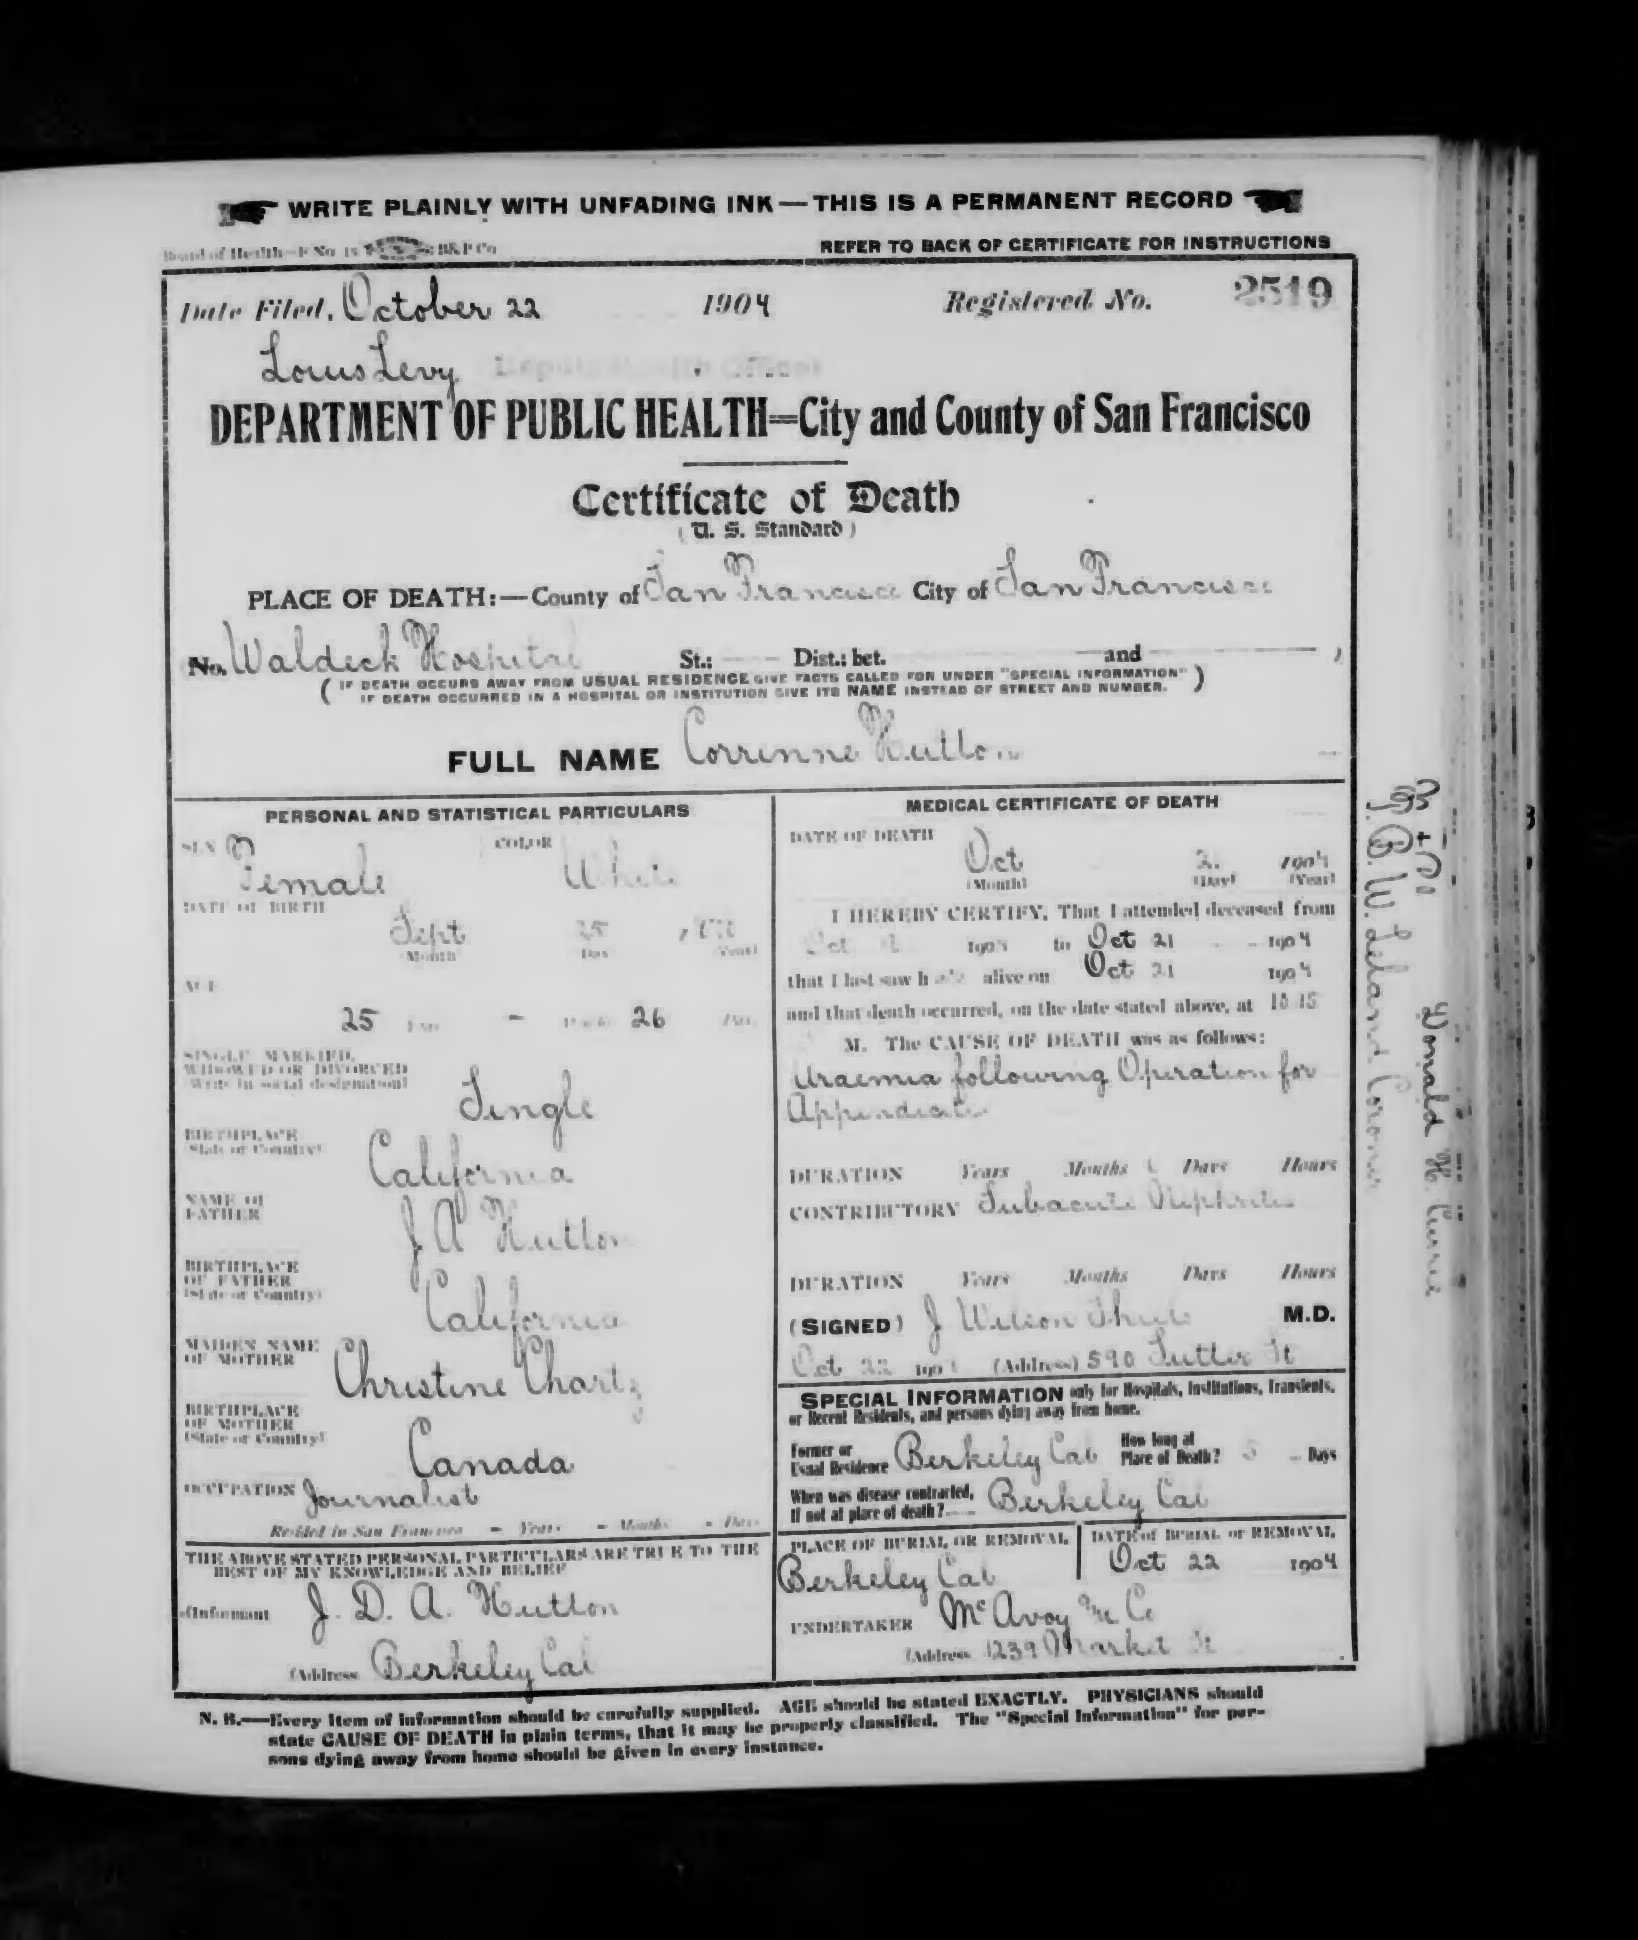 WRITE PLAINLY WITH UNFADING INK—THIS IS A PERMANENT RECORD
Board of Health—F No 15 B&P Co
REFER TO BACK OF CERTIFICATE FOR INSTRUCTIONS
Date Filed, October 22 1904 Registered No. 2519
Louis Levy Deputy Health Officer
DEPARTMENT OF PUBLIC HEALTH=City and County of San Francisco
Certificate of Death
(U. S. Standard)
PLACE OF DEATH:—County of San Francisco City of San Francisco
No. Waldeck Hospital St.; Dist.; bet. and )
( IF DEATH OCCURS AWAY FROM USUAL RESIDENCE GIVE FACTS CALLED FOR UNDER "SPECIAL INFORMATION" )
( IF DEATH OCCURRED IN A HOSPITAL OR INSTITUTION GIVE ITS NAME INSTEAD OF STREET AND NUMBER. )
FULL NAME Corrinne Hutton
PERSONAL AND STATISTICAL PARTICULARS
SEX Female COLOR White
DATE OF BIRTH
Sept 25
(Month) Day (Year)
AGE
25 Years - Months 26 Days
SINGLE, MARRIED,
WIDOWED OR DIVORCED
(Write in social designation)
Single
BIRTHPLACE
(State or Country)
California
NAME OF
FATHER
J A Hutton
BIRTHPLACE
OF FATHER
(State or Country)
California
MAIDEN NAME
OF MOTHER
Christine Chartz
BIRTHPLACE
OF MOTHER
(State or Country)
Canada
OCCUPATION Journalist
Resided in San Francisco - Years - Months - Days
THE ABOVE STATED PERSONAL PARTICULARS ARE TRUE TO THE
BEST OF MY KNOWLEDGE AND BELIEF
(Informant J. D. A. Hutton
(Address Berkeley Cal
MEDICAL CERTIFICATE OF DEATH
DATE OF DEATH
Oct 1904
(Month) (Day) (Year)
I HEREBY CERTIFY, That I attended deceased from
Oct 1904 to Oct 21 1904
that I last saw h alive on Oct 21 1904
and that death occurred, on the date stated above, at 10 15
M. The CAUSE OF DEATH was as follows:
Uraemia following Operation for
Appendicitis
DURATION Years Months Days Hours
CONTRIBUTORY Subacute Nephritis
DURATION Years Months Days Hours
(SIGNED) J Wilson Shiels M.D.
Oct 22 190 (Address) 590 Sutter St
SPECIAL INFORMATION only for Hospitals, Institutions, Transients,
or Recent Residents, and persons dying away from home.
Former or
Usual Residence Berkeley Cal How long at
Place of Death? 5 Days
When was disease contracted,
If not at place of death? Berkeley Cal
PLACE OF BURIAL OR REMOVAL
Berkeley Cal
DATE of BURIAL or REMOVAL
Oct 22 1904
UNDERTAKER McAvoy & Co
(Address 1239 Market St
N. B.—Every item of information should be carefully supplied. AGE should be stated EXACTLY. PHYSICIANS should
state CAUSE OF DEATH in plain terms, that it may be properly classified. The "Special Information" for per-
sons dying away from home should be given in every instance.
T. B. W. Leland Coroner
Donald H. Currie